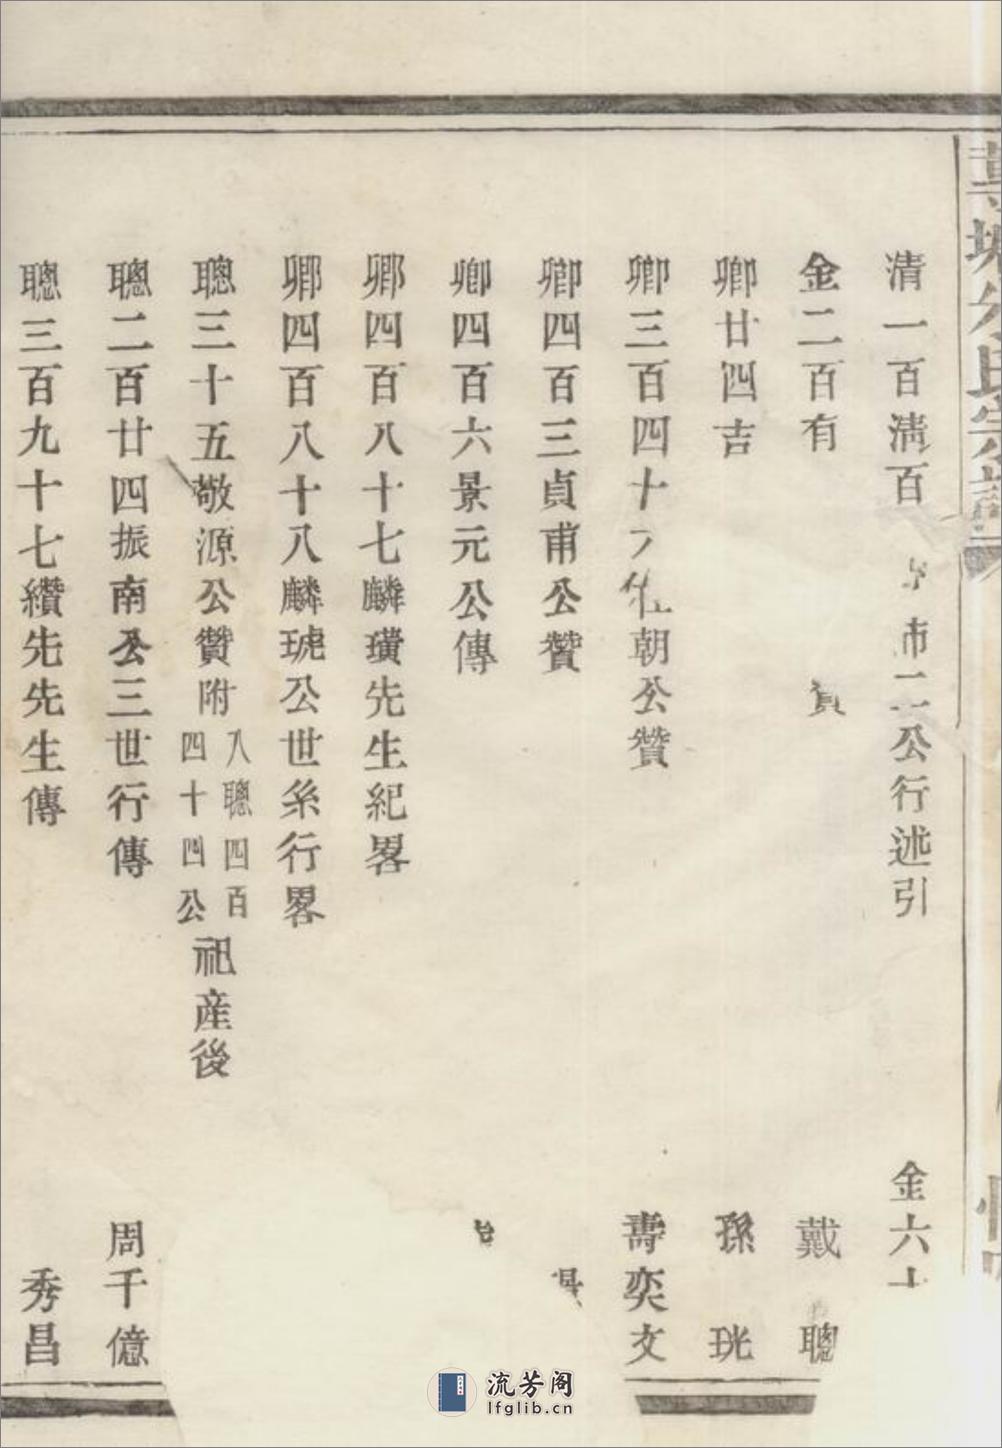 清一百清百 二公行述引 金六十
金二百有 戴 聰
卿廿四吉 孫 珖
卿三百四十 朝公贊 壽奕文
卿四百三貞甫公贊
卿四百六景元公傳
卿四百八十七麟璜先生紀畧
卿四百八十八麟琥公世系行畧
聰三十五敬源公贊附八聰四百四十四公祀産後
聰二百廿四振南公三世行傳 周千億
聰三百九十七纘先先生傳 秀昌
流芳阁
lfglib.cn